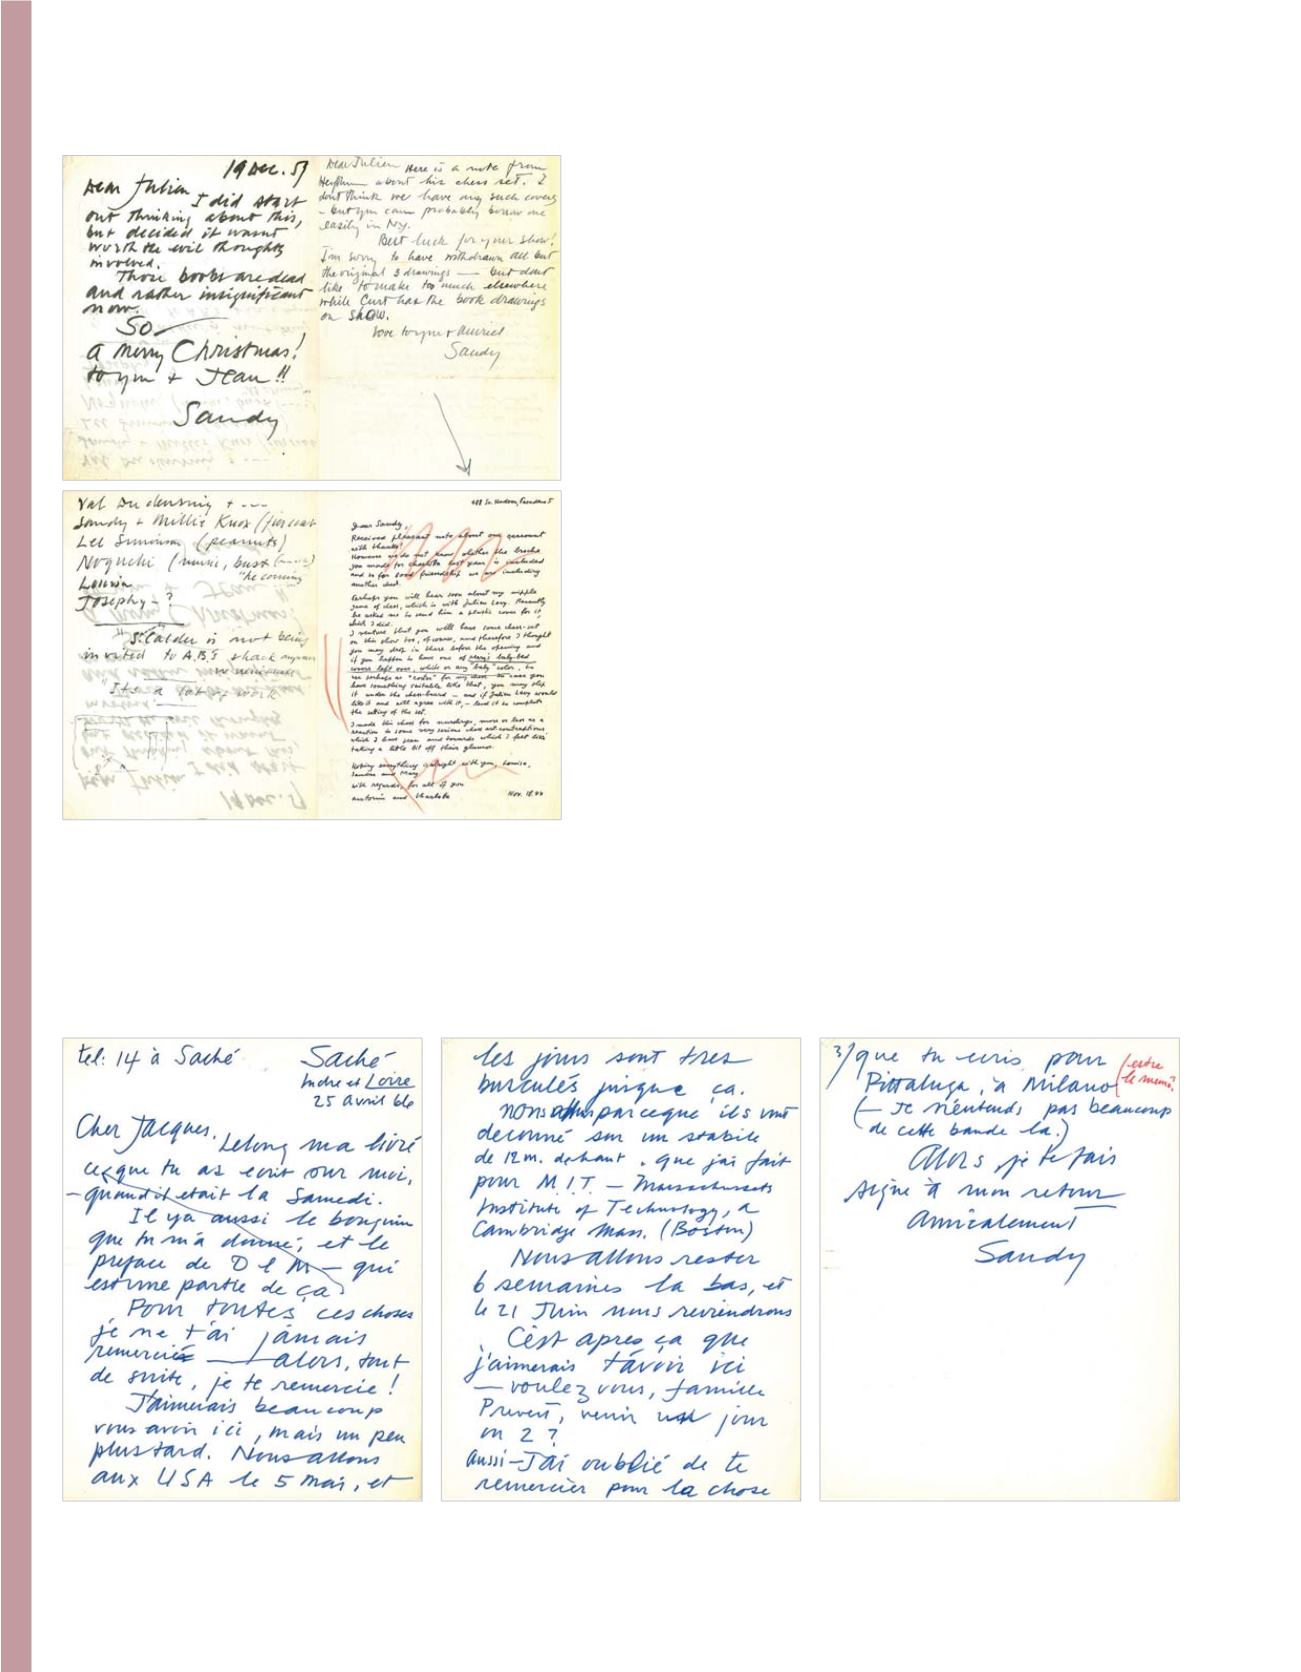 19 Dec. 57
Dear Julien
I did start
out thinking about this,
but decided it wasnt
worth the evil thoughts
involved.
Those boobs are dead
and rather insignificant
now.
So
a merry Christmas!
to you + Jean!!
Sandy
Dear Julien Here is a note from
about his chess set. I
dont think we have any such covers
– but you can probably borrow one
easily in NY.
Best luck for your show!
I'm sorry to have withdrawn all but
the original 3 drawings — but dont
like to make too much elsewhere
while Curt has the book drawings
on show.
love to you + Muriel
Sandy
+ ---
Sandy + Millie Knox (fur coat
Lee Simonson (peanuts)
Noguchi (music, bust
"he coming"
Louisa
Josephy - ?
"S. Calder is not being
invited to A.B.'s shack anymore
"It's a lot
Dear Sandy,
Received pleasant note about one
with thanks!
However we do not know, whether the broche
you made for Charlotte last year, is included
and so for good friendship we are including
another check.
Perhaps you will hear soon about my
game of chess, which is with Julien Levy. Recently
he asked me to send him a plastic cover for it,
which I did.
I venture that you will have some chess-set
on this show too, of course, and therefore I thought
you may drop in there before the opening and
if you happen to have one of Mary's baby-bed
covers left over, white or any "baby" color, to
use perhaps as "cover" for my chess in case you
have something suitable like that, you may slip
it under the chess-board – and if Julien Levy would
like it and will agree with it, – lend it to complete
the setting of the set.
I made this chess for more or less as a
reaction to some very serious chess art-contraptions
which I have seen and towards which I feel like
taking a little bit off their glamour.
Hoping everything alright with you, Louisa,
Sandra and Mary
with regards, for all of you
Antonin and Charlotte
Nov. 18.44
tel: 14 à Saché
Saché
Indre et Loire
25 Avril 66
Cher Jacques,
Lelong m'a livré
ce que tu as ecrit sur moi,
– quand il etait la Samedi.
Il y a aussi le bouquin
que tu m'a donné, et le
preface de D l M – qui
est une partie de ça
Pour toutes ces choses
je ne t'ai jamais
remercié — alors, tout
de suite, je te remercie!
J'aimerais beaucoup
vous avoir ici, mais un peu
plus tard. Nous allons
aux USA le 5 mai, et
les jours sont tres
busculés jusque ça.
parceque ils ont
deconné sur un stabile
de 12 m. de haut, que j'ai fait
pour M.I.T – Massachussets
Institute of Technology, a
Cambridge Mass. (Boston)
Nous allons rester
6 semaines la bas, et
le 21 Juin nous reviendrons
C'est apres ça que
j'aimerais t'avoir ici
— voulez vous, famille
Prevert, venir un jour
ou 2?
Aussi – J'ai oublié de te
remercier pour la chose
3/ que tu ecris pour
Pittaluga, à Milano
(– Je n'entends pas beaucoup
de cette bande la.)
Alors, je te fais
signe à mon retour
Amicalement
Sandy